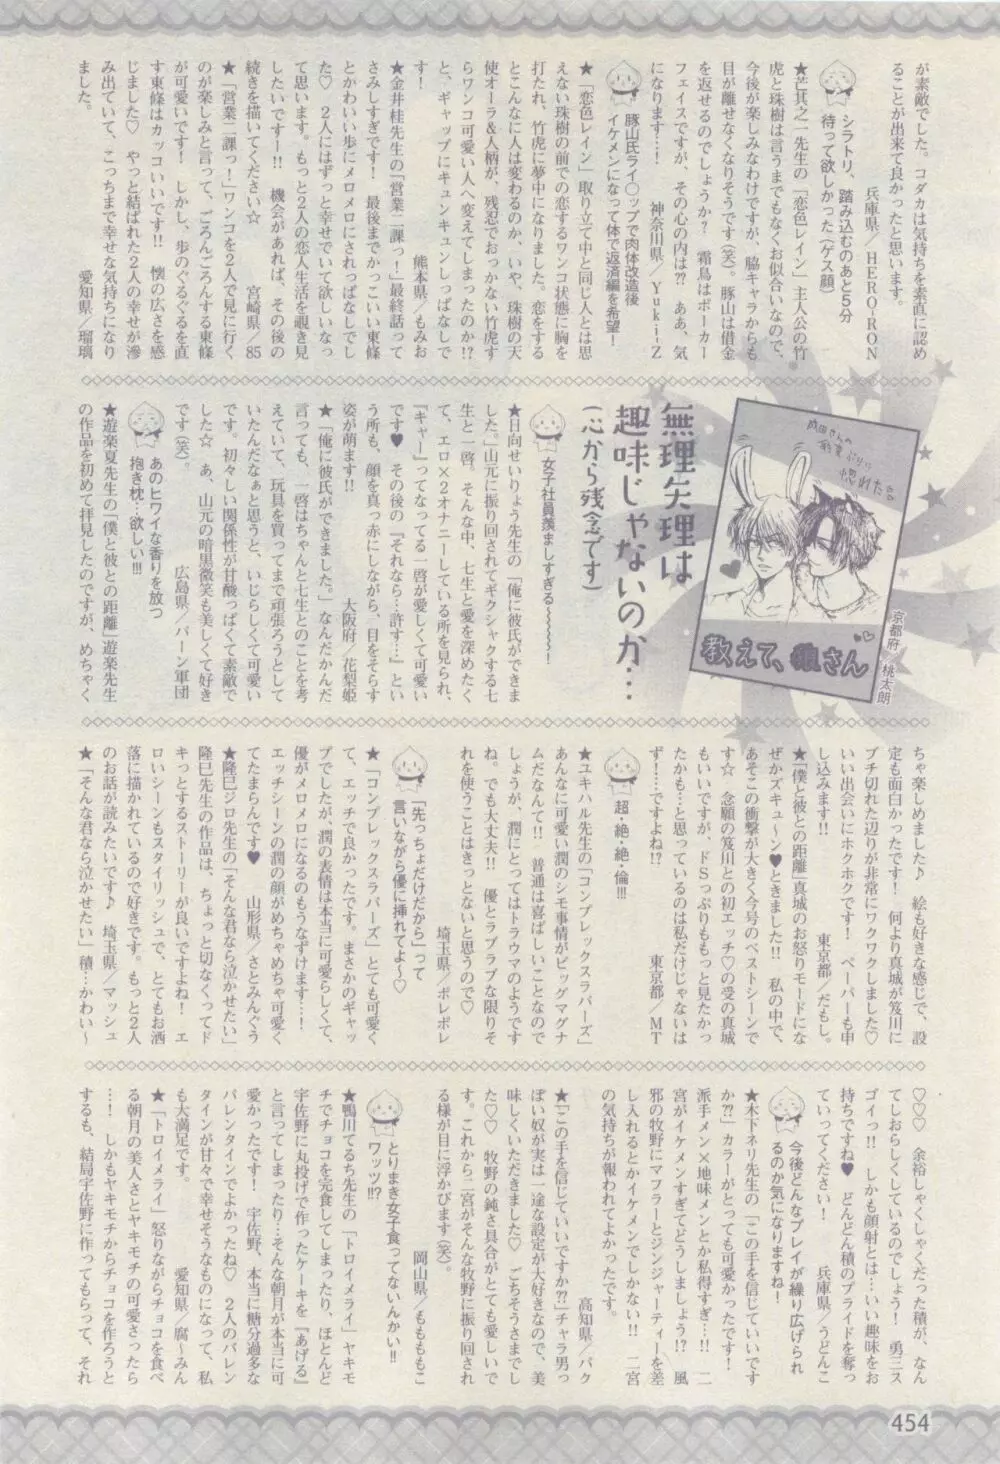 が素敵でした。コダカは気持ちを素直に認め
ることが出来て良かったと思います。
兵庫県／HERO-RON
シラトリ、踏み込むのあと5分
待って欲しかった(ゲス顔)
★芒其之一先生の「恋色レイン」主人公の竹
虎と珠樹は言うまでもなくお似合いなので、
今後が楽しみなわけですが、脇キャラからも
目が離せなくなりそうです(笑)。豚山は借金
を返せるのでしょうか？　霜鳥はポーカー
フェイスですが、その心の内は⁇　ああ、気
になります…！　神奈川県／Yuki-Z
豚山氏ライ○ップで肉体改造後
イケメンになって体で返済編を希望！
★「恋色レイン」取り立て中と同じ人とは思
えない珠樹の前での恋するワンコ状態に胸を
打たれ、竹虎に夢中になりました。恋をする
とこんなに人は変わるのか、いや、珠樹の天
使オーラ&人柄が、残忍でおっかない竹虎す
らワンコ可愛い人へ変えてしまったのか⁉
と、ギャップにキュンキュンしっぱなしで
す！　熊本県／もみお
★金井桂先生の「営業二課っ！」最終話って
さみしすぎです！　最後までかっこいい東條
とかわいい歩にメロメロにされっぱなしでし
た♡　2人にはずっと幸せでいて欲しいなっ
て思います。もっと2人の恋人生活を覗き見
したいですー‼　機会があれば、その後の
続きを描いてください☆　宮崎県／85
★「営業二課っ！」ワンコを2人で見に行く
のが楽しみと言って、ごろんごろんする東條
が可愛いです！　しかし、歩のぐるぐるを直
す東條はカッコいいです‼　懐の広さを感
じました♡　やっと結ばれた2人の幸せが滲
み出ていて、こっちまで幸せな気持ちになり
ました。　愛知県／瑠璃
成田さんの
惚れた。
教えて、狼さん
京都府／桃太朗
無理矢理は
趣味じゃないのか…
(心から残念です)
女子社員羨ましすぎる〜〜〜〜〜！
★日向せいりょう先生の「俺に彼氏ができま
した。」山元に振り回されてギクシャクする七
生と一啓。そんな中、七生と愛を深めたく
て、エロ×2オナニーしている所を見られ、
『キャー』ってなってる一啓が愛しくて可愛い
です♥　その後の『それなら…許す…』とい
う所も、顔を真っ赤にしながら、目をそらす
姿が萌ます‼　大阪府／花梨姫
★「俺に彼氏ができました。」なんだかんだ
言っても、一啓はちゃんと七生とのことを考
えていて、玩具を買ってまで頑張ろうとして
いたんだなぁと思うと、いじらしくて可愛い
です。初々しい関係性が甘酸っぱくて素敵で
した☆　あ、山元の暗黒微笑も美しくて好き
です(笑)。　広島県／バーン軍団
あのヒワイな香りを放つ
抱き枕…欲しい‼
★遊楽夏先生の「僕と彼との距離」遊楽先生
の作品を初めて拝見したのですが、めちゃく
ちゃ楽しめました♪　絵も好きな感じで、設
定も面白かったです！　何より真城が笈川に
ブチ切れた辺りが非常にワクワクしました♡
いい出会いにホクホクです！　ペーパーも申
し込みます‼　東京都／だもし。
★「僕と彼との距離」真城のお怒りモードにな
ぜかズキュ〜ン♥ときました‼　私の中で、
あそこの衝撃が大きく今号のベストシーンで
す☆　念願の笈川との初エッチ♡の受の真城
もいいですが、ドSっぷりももっと見たかっ
たかも…と思っているのは私だけじゃないは
ず！…ですよね⁉　東京都／MT
超・絶・絶・倫‼
★ユキハル先生の「コンプレックスラバーズ」
あんなに可愛い潤のシモ事情がビッグマグナ
ムだなんて‼　普通は喜ばしいことなので
しょうが、潤にとってはトラウマのようです
ね。でも大丈夫‼　優とラブラブな限りそ
れを使うことはきっとないと思うので♡
埼玉県／ポレポレ
「先っちょだけだから」って
言いながら優に挿れてよ〜♡
★「コンプレックスラバーズ」とても可愛く
て、エッチで良かったです。まさかのギャッ
プでしたが、潤の表情は本当に可愛らしくて、
優がメロメロになるのもうなずけます…！
エッチシーンの潤の顔がめちゃめちゃ可愛く
てたまらんです♥　山形県／さとみんぐう
★隆巳ジロ先生の「そんな君なら泣かせたい」
隆巳先生の作品は、ちょっと切なくってド
キっとするストーリーが良いですよね！　エ
ロいシーンもスタイリッシュで、とてもお洒
落に描かれているので好きです。もっと2人
のお話が読みたいです♪　埼玉県／マッシュ
★「そんな君なら泣かせたい」積…かわい〜
♡♡♡　余裕しゃくしゃくだった積が、なん
てしおらしくしているのでしょう！　勇三ス
ゴイっ‼　しかも顔射とは…いい趣味をお
持ちですね♥　どんどん積のプライドを奪っ
ていってください！　兵庫県／うどんこ
今後どんなプレイが繰り広げられ
るのか気になりますね！
★木下ネリ先生の「この手を信じていいです
か⁇」カラーがとっても可愛かったです！
派手メン×地味メンとか私得すぎ…‼　二
宮がイケメンすぎてどうしましょう⁉　風
邪の牧野にマフラーとジンジャーティーを差
し入れるとかイケメンでしかない‼　二宮
の気持ちが報われてよかったです。
高知県／パク
★「この手を信じていいですか⁇」チャラ男っ
ぽい奴が実は一途な設定が大好きなので、美
味しくいただきました♡　ごちそうさまでし
た♡♡　牧野の鈍さ具合がとても愛しいで
す。これから二宮がそんな牧野に振り回され
る様が目に浮かびます(笑)。
岡山県／ももももこ
とりまき女子食ってないんかい‼
ワッツ⁉
★鴨川てるち先生の「トロイメライ」ヤキモ
チでチョコを完食してしまったり、ほとんど
宇佐野に丸投げで作ったケーキを『あげる』
と言ってしまったり…そんな朝月が本当に可
愛かったです！　宇佐野、本当に糖分過多な
バレンタインでよかったね♡　2人のバレン
タインが甘々で幸せそうなものになって、私
も大満足です。　愛知県／腐〜みん
★「トロイメライ」怒りながらチョコを食べ
る朝月の美人さとヤキモチの可愛さったら
…！　しかもヤキモチからチョコを作ろうと
するも、結局宇佐野に作ってもらって、それ
454